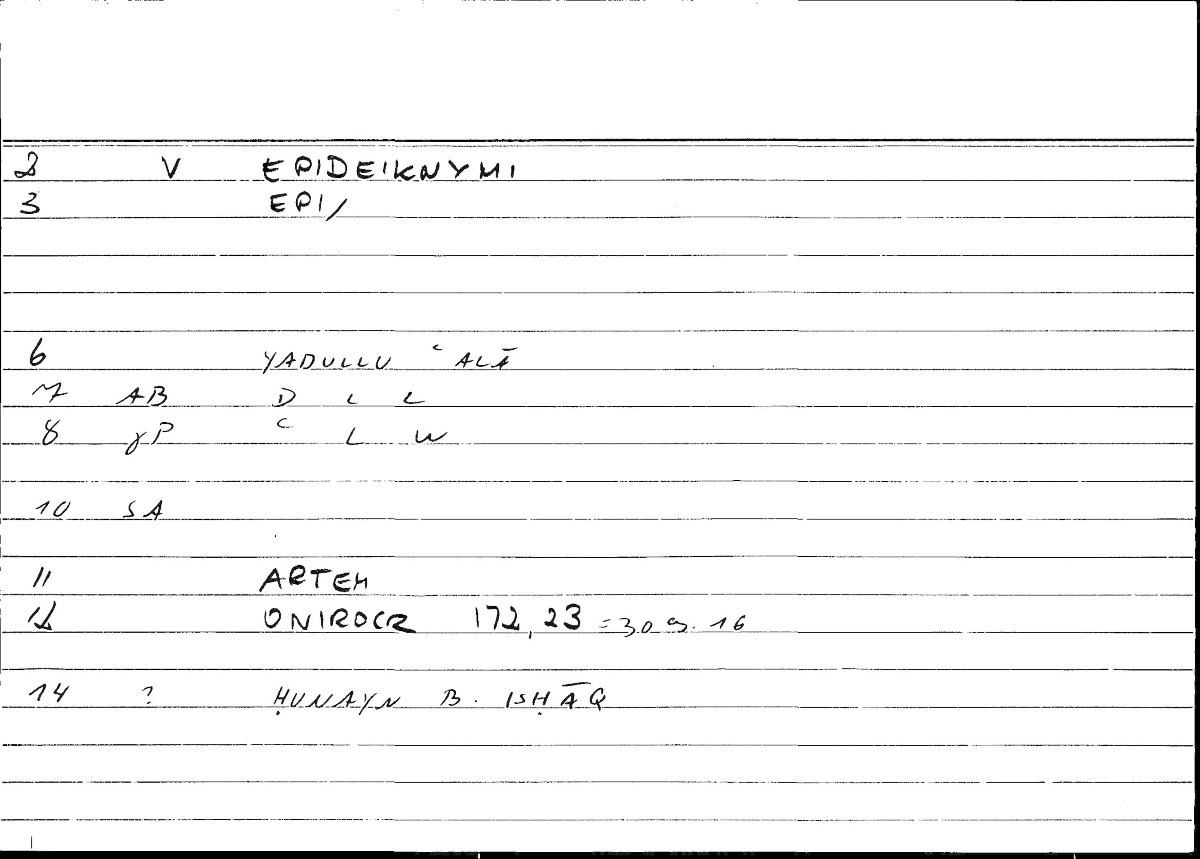 2 V EPIDEIKNYMI
3 EPI/
6 YADULLU ʿALĀ
7 AB D L L
8 γP ʿ L W
10 SA
11 ARTEM
12 ONIROCR 172,23 =309. 16
14 ? ḤUNAYN B. ISḤĀQ